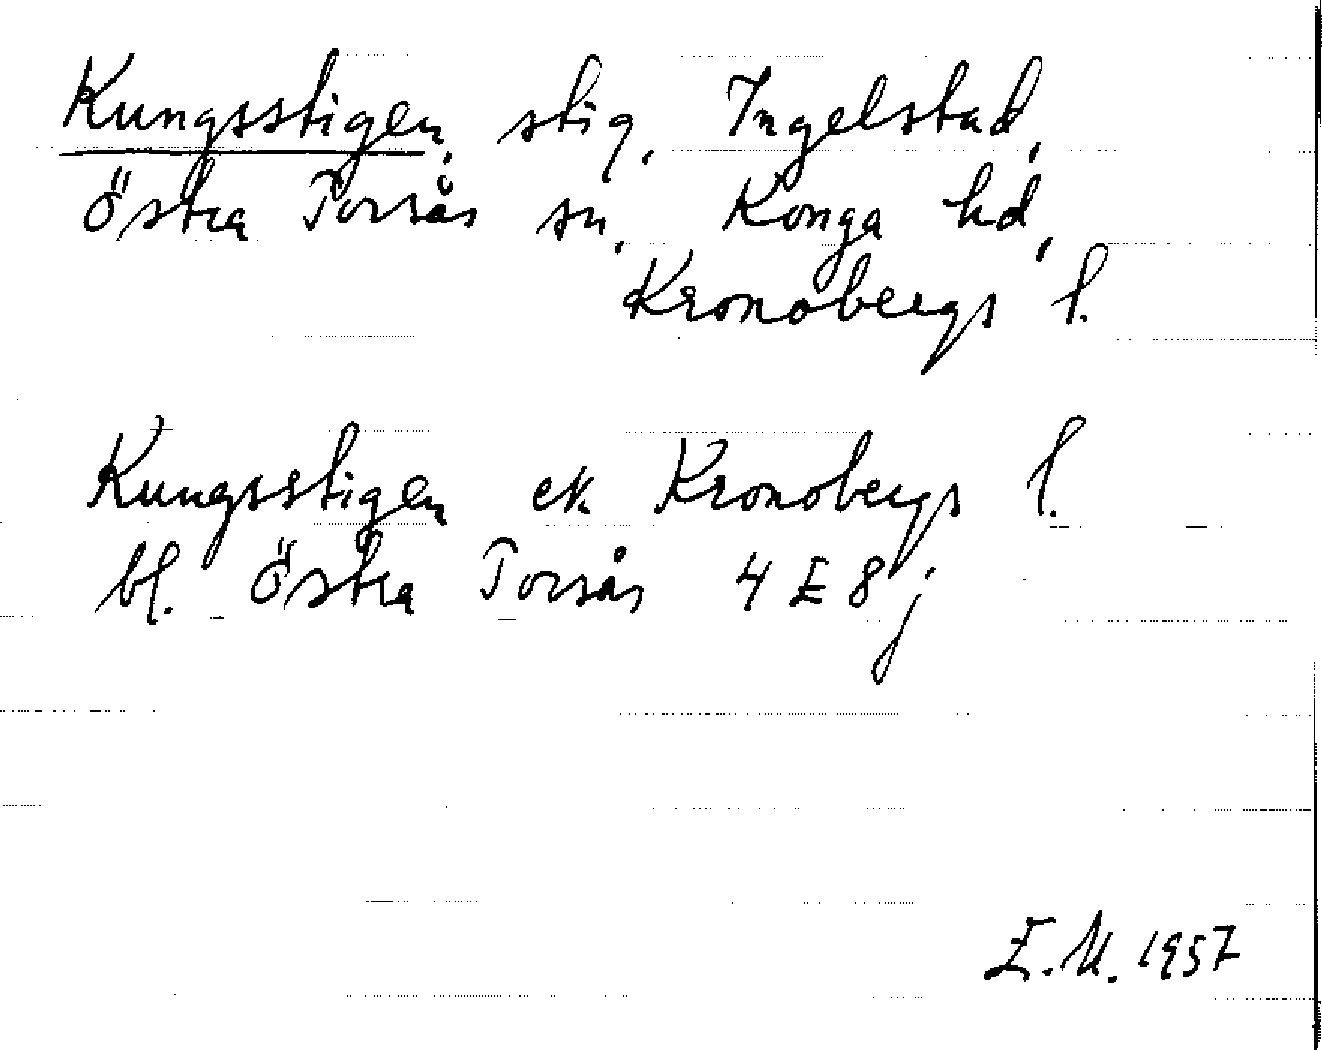 Kungsstigen, stig, Ingelstad,
Östra Torsås sn, Konga hd,
Kronobergs l.
Kungsstigen ek Kronobergs l.
bl. Östra Torsås 4 E 8 j
E.M. 1957